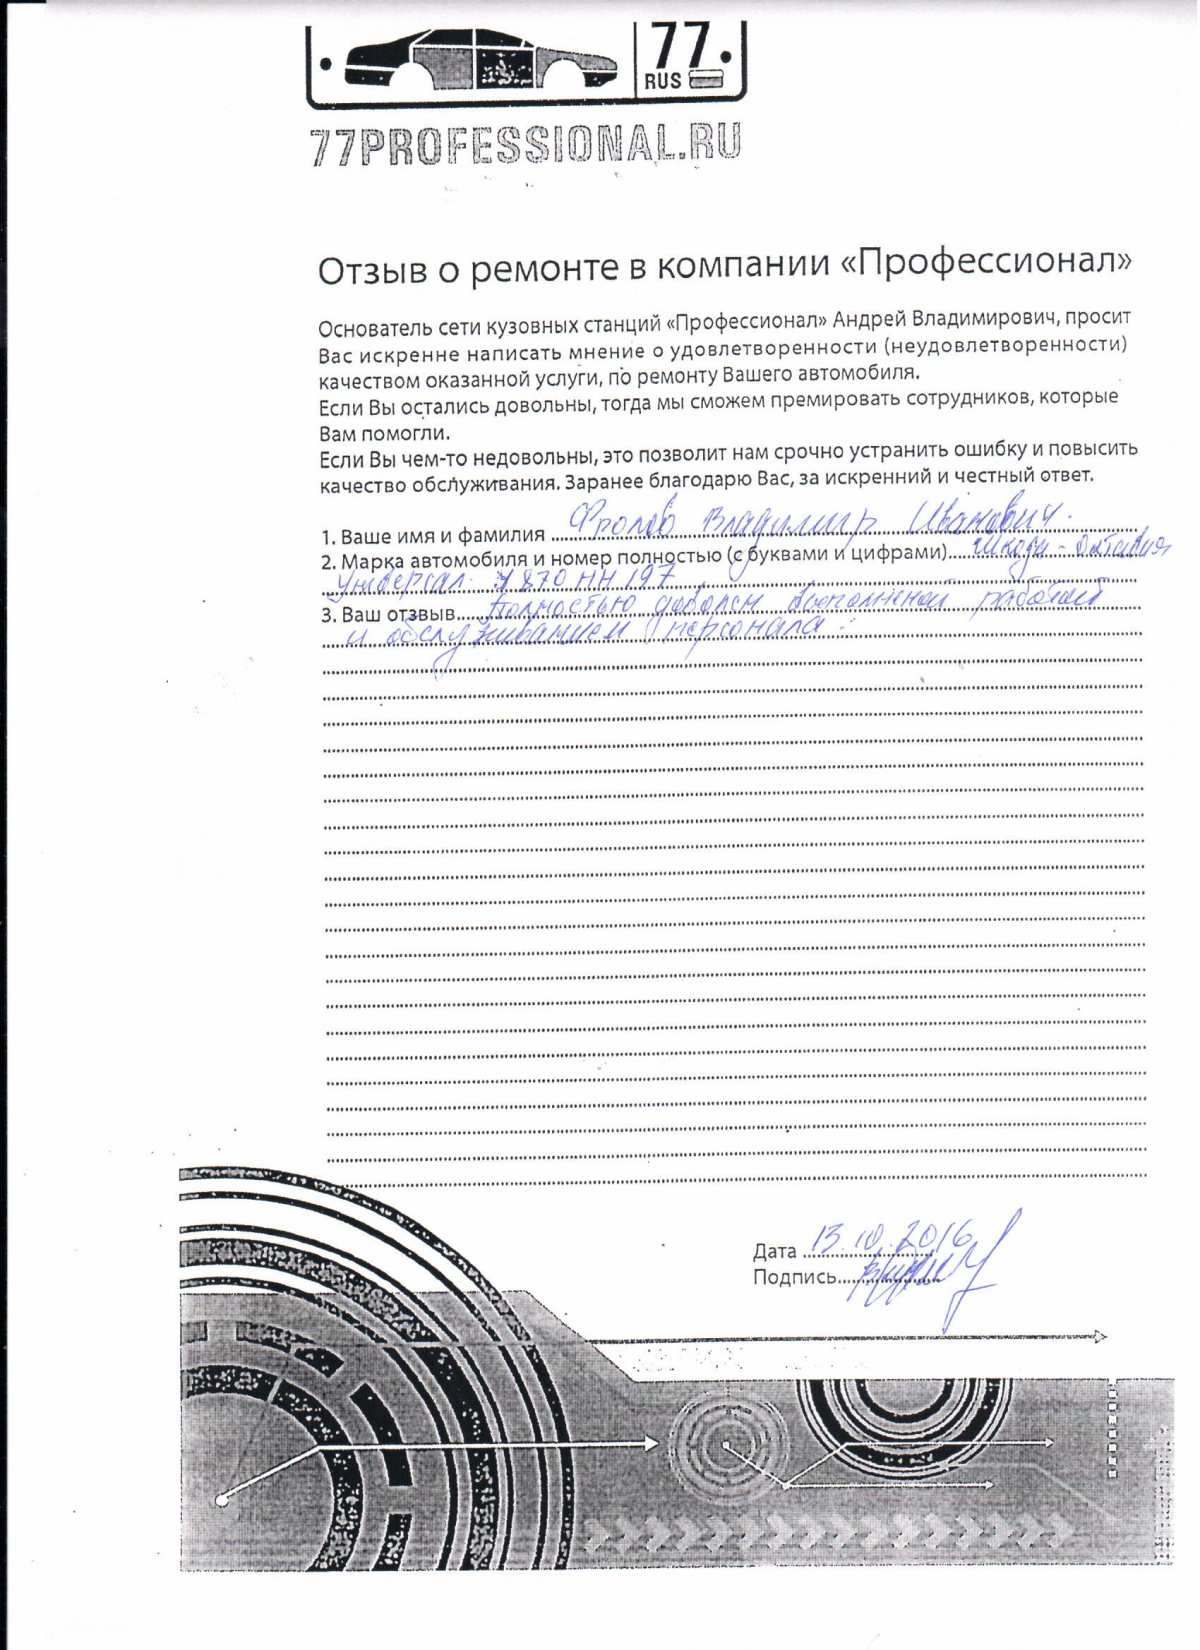 77
RUS
77PROFESSIONAL.RU
Отзыв о ремонте в компании «Профессионал»
Основатель сети кузовных станций «Профессионал» Андрей Владимирович, просит
Вас искренне написать мнение о удовлетворенности (неудовлетворенности)
качеством оказанной услуги, по ремонту Вашего автомобиля.
Если Вы остались довольны, тогда мы сможем премировать сотрудников, которые
Вам помогли.
Если Вы чем-то недовольны, это позволит нам срочно устранить ошибку и повысить
качество обслуживания. Заранее благодарю Вас, за искренний и честный ответ.
1. Ваше имя и фамилия Фролов Владимир Иванович.
2. Марка автомобиля и номер полностью (с буквами и цифрами) Шкода - Октавия
универсал. 870 НН 197
3. Ваш отзвыв Полностью доволен выполненной работой
и обслуживанием персонала.
Дата 13.10.2016
Подпись